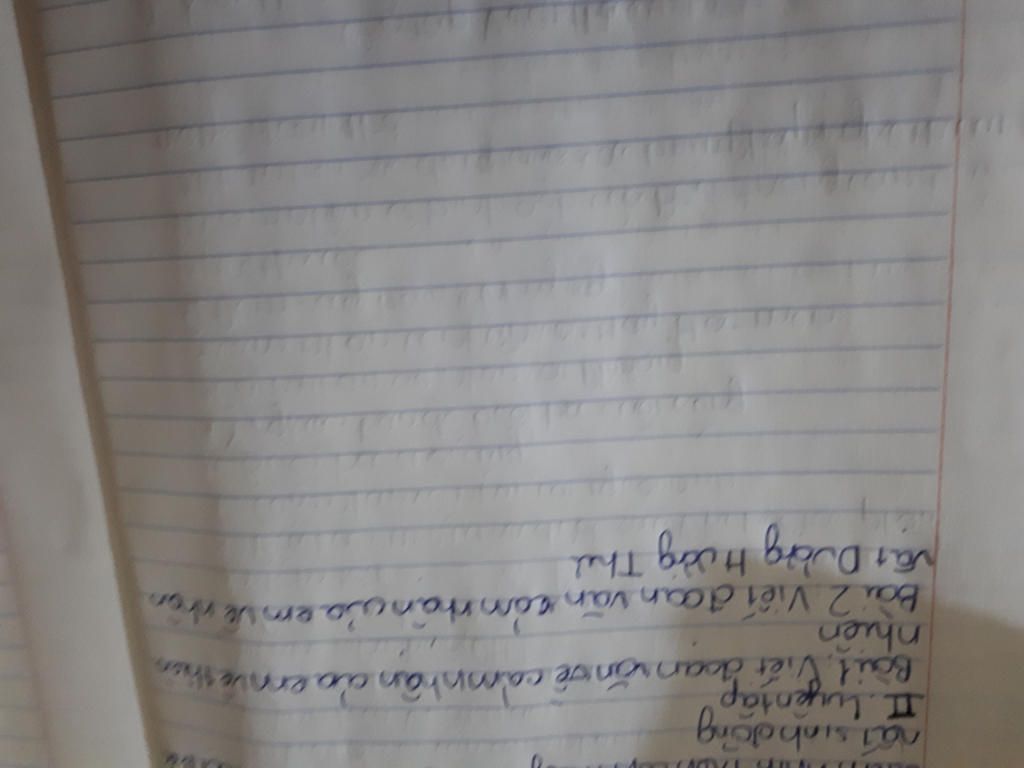 rất sinh động
II. Luyện tập
Bài 1. Viết đoạn văn về cảm nhận của em về thiên
nhiên
Bài 2. Viết đoạn văn cảm nhận của em về nhân
vật Dượng Hương Thư